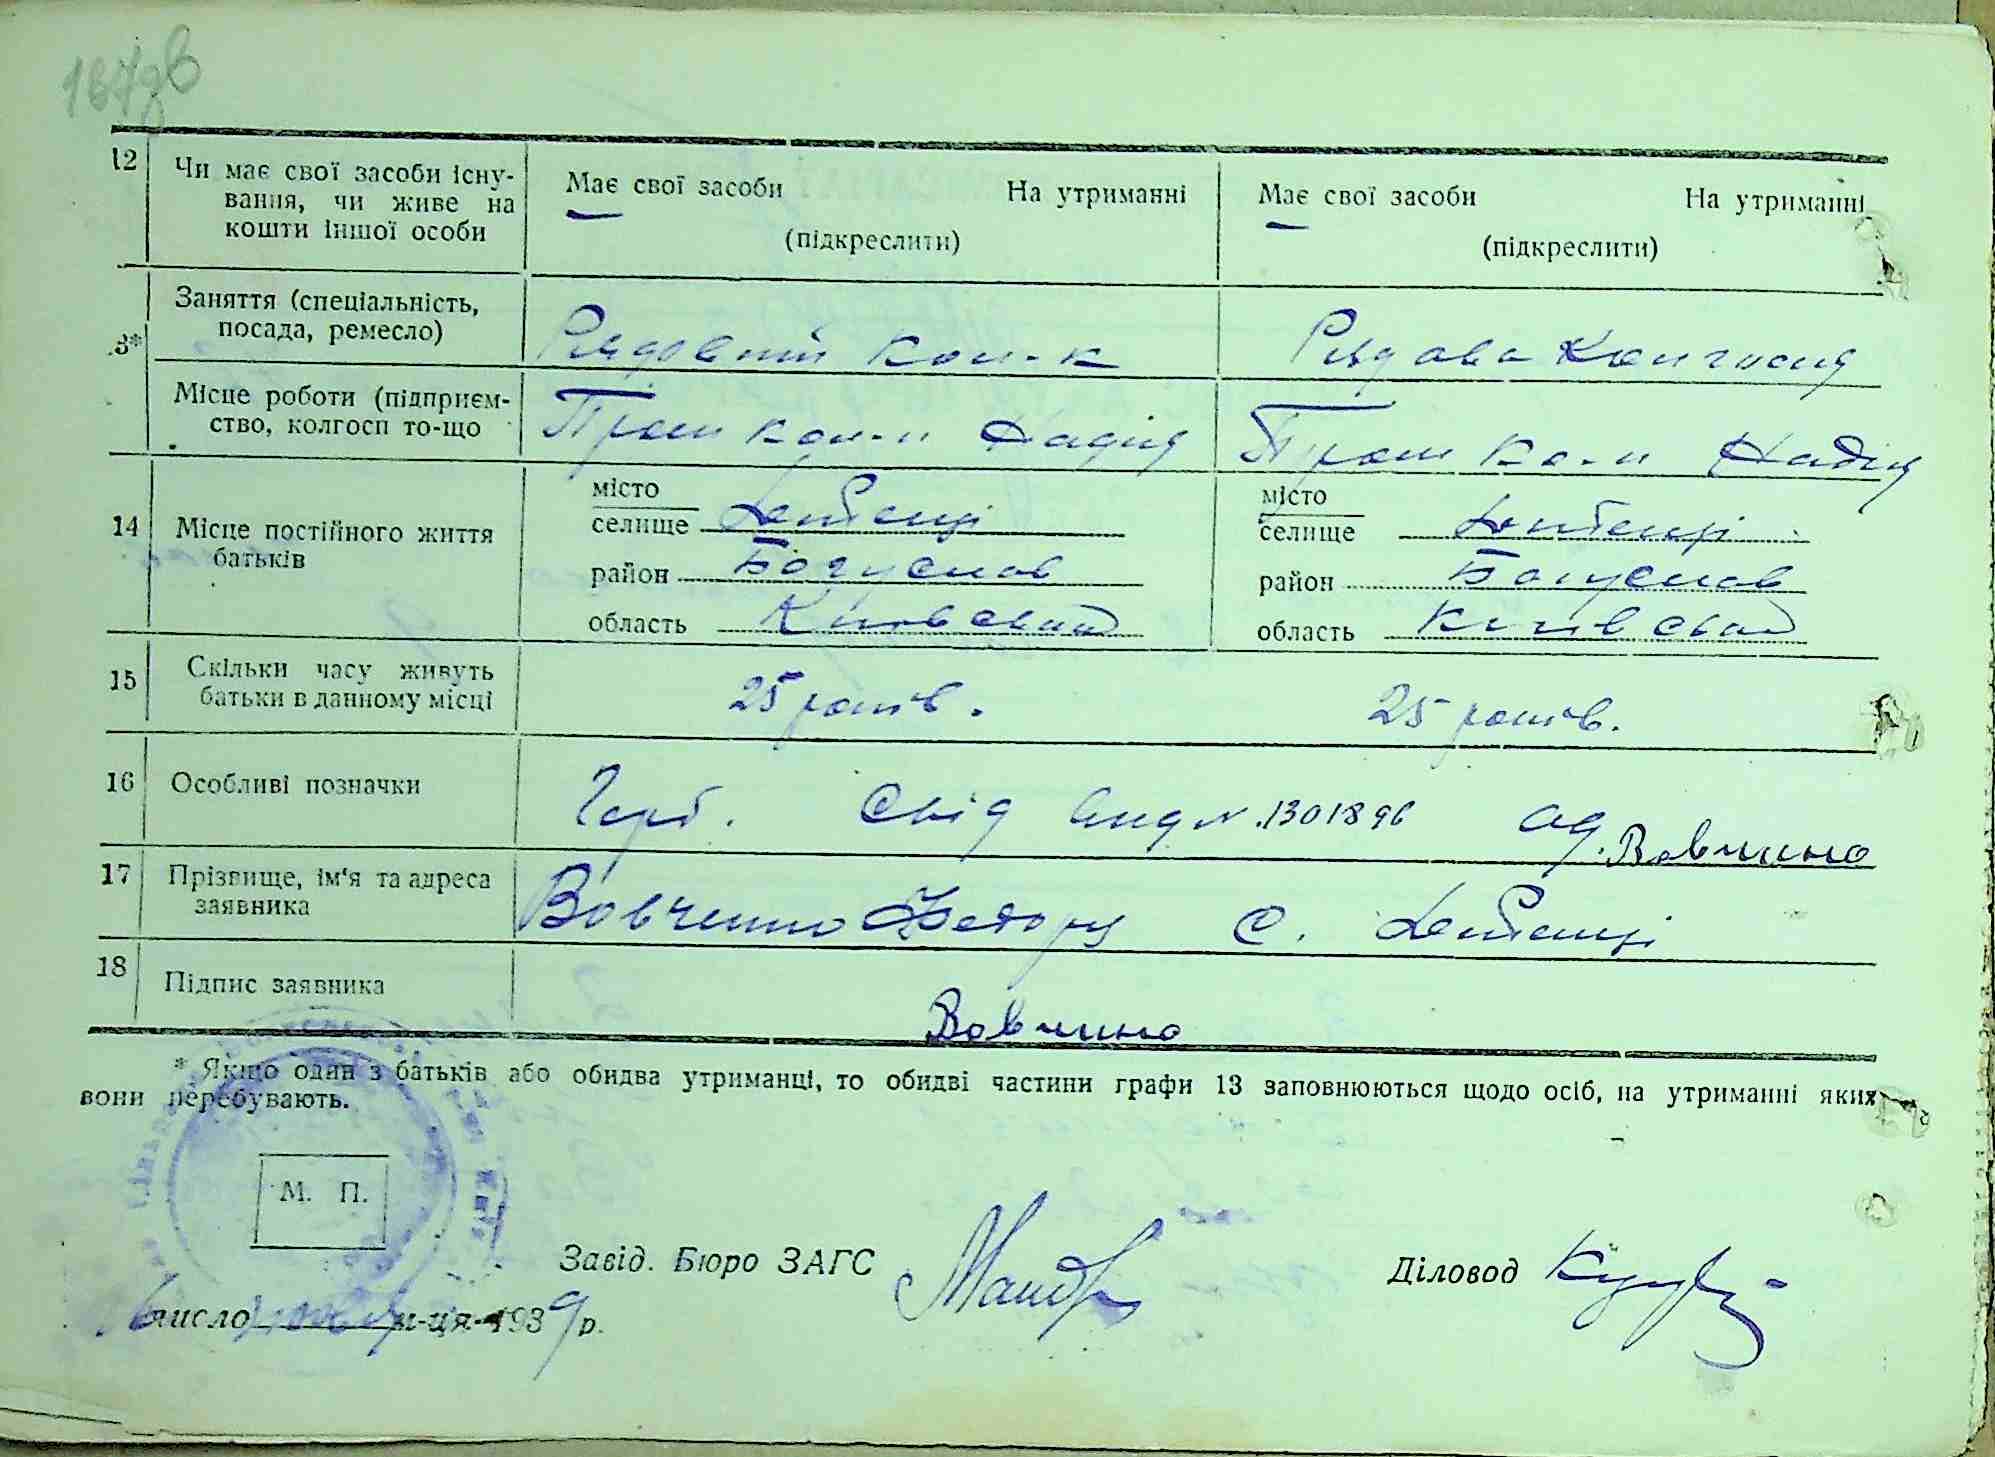 12 Чи має свої засоби існу-
вання, чи живе на
кошти іншої особи
Має свої засоби На утриманні
(підкреслити)
Має свої засоби На утриманні
(підкреслити)
3* Заняття (спеціальність,
посада, ремесло)
Рядовий кол-к
Рядова колгосп
Місце роботи (підприєм-
ство, колгосп то-що
кол-п Надія
кол-п Надія
14 Місце постійного життя
батьків
місто
селище Дептенці
район Богуслав
область Киівський
місто
селище Дептенці
район Богуслав
область Київськ
15 Скільки часу живуть
батьки в данному місці
25 років.
25 років.
16 Особливі позначки
Герб. Свід вид N.1301896 од. Вовченко
17 Прізвище, ім'я та адреса
заявника
Вовченко Федор с. Дептенці
18 Підпис заявника
Вовченко
* Якщо один з батьків або обидва утриманці, то обидві частини графи 13 заповнюються щодо осіб, на утриманні яких
вони перебувають.
М. П.
Завід. Бюро ЗАГС
Діловод
число м-ця 1939 р.